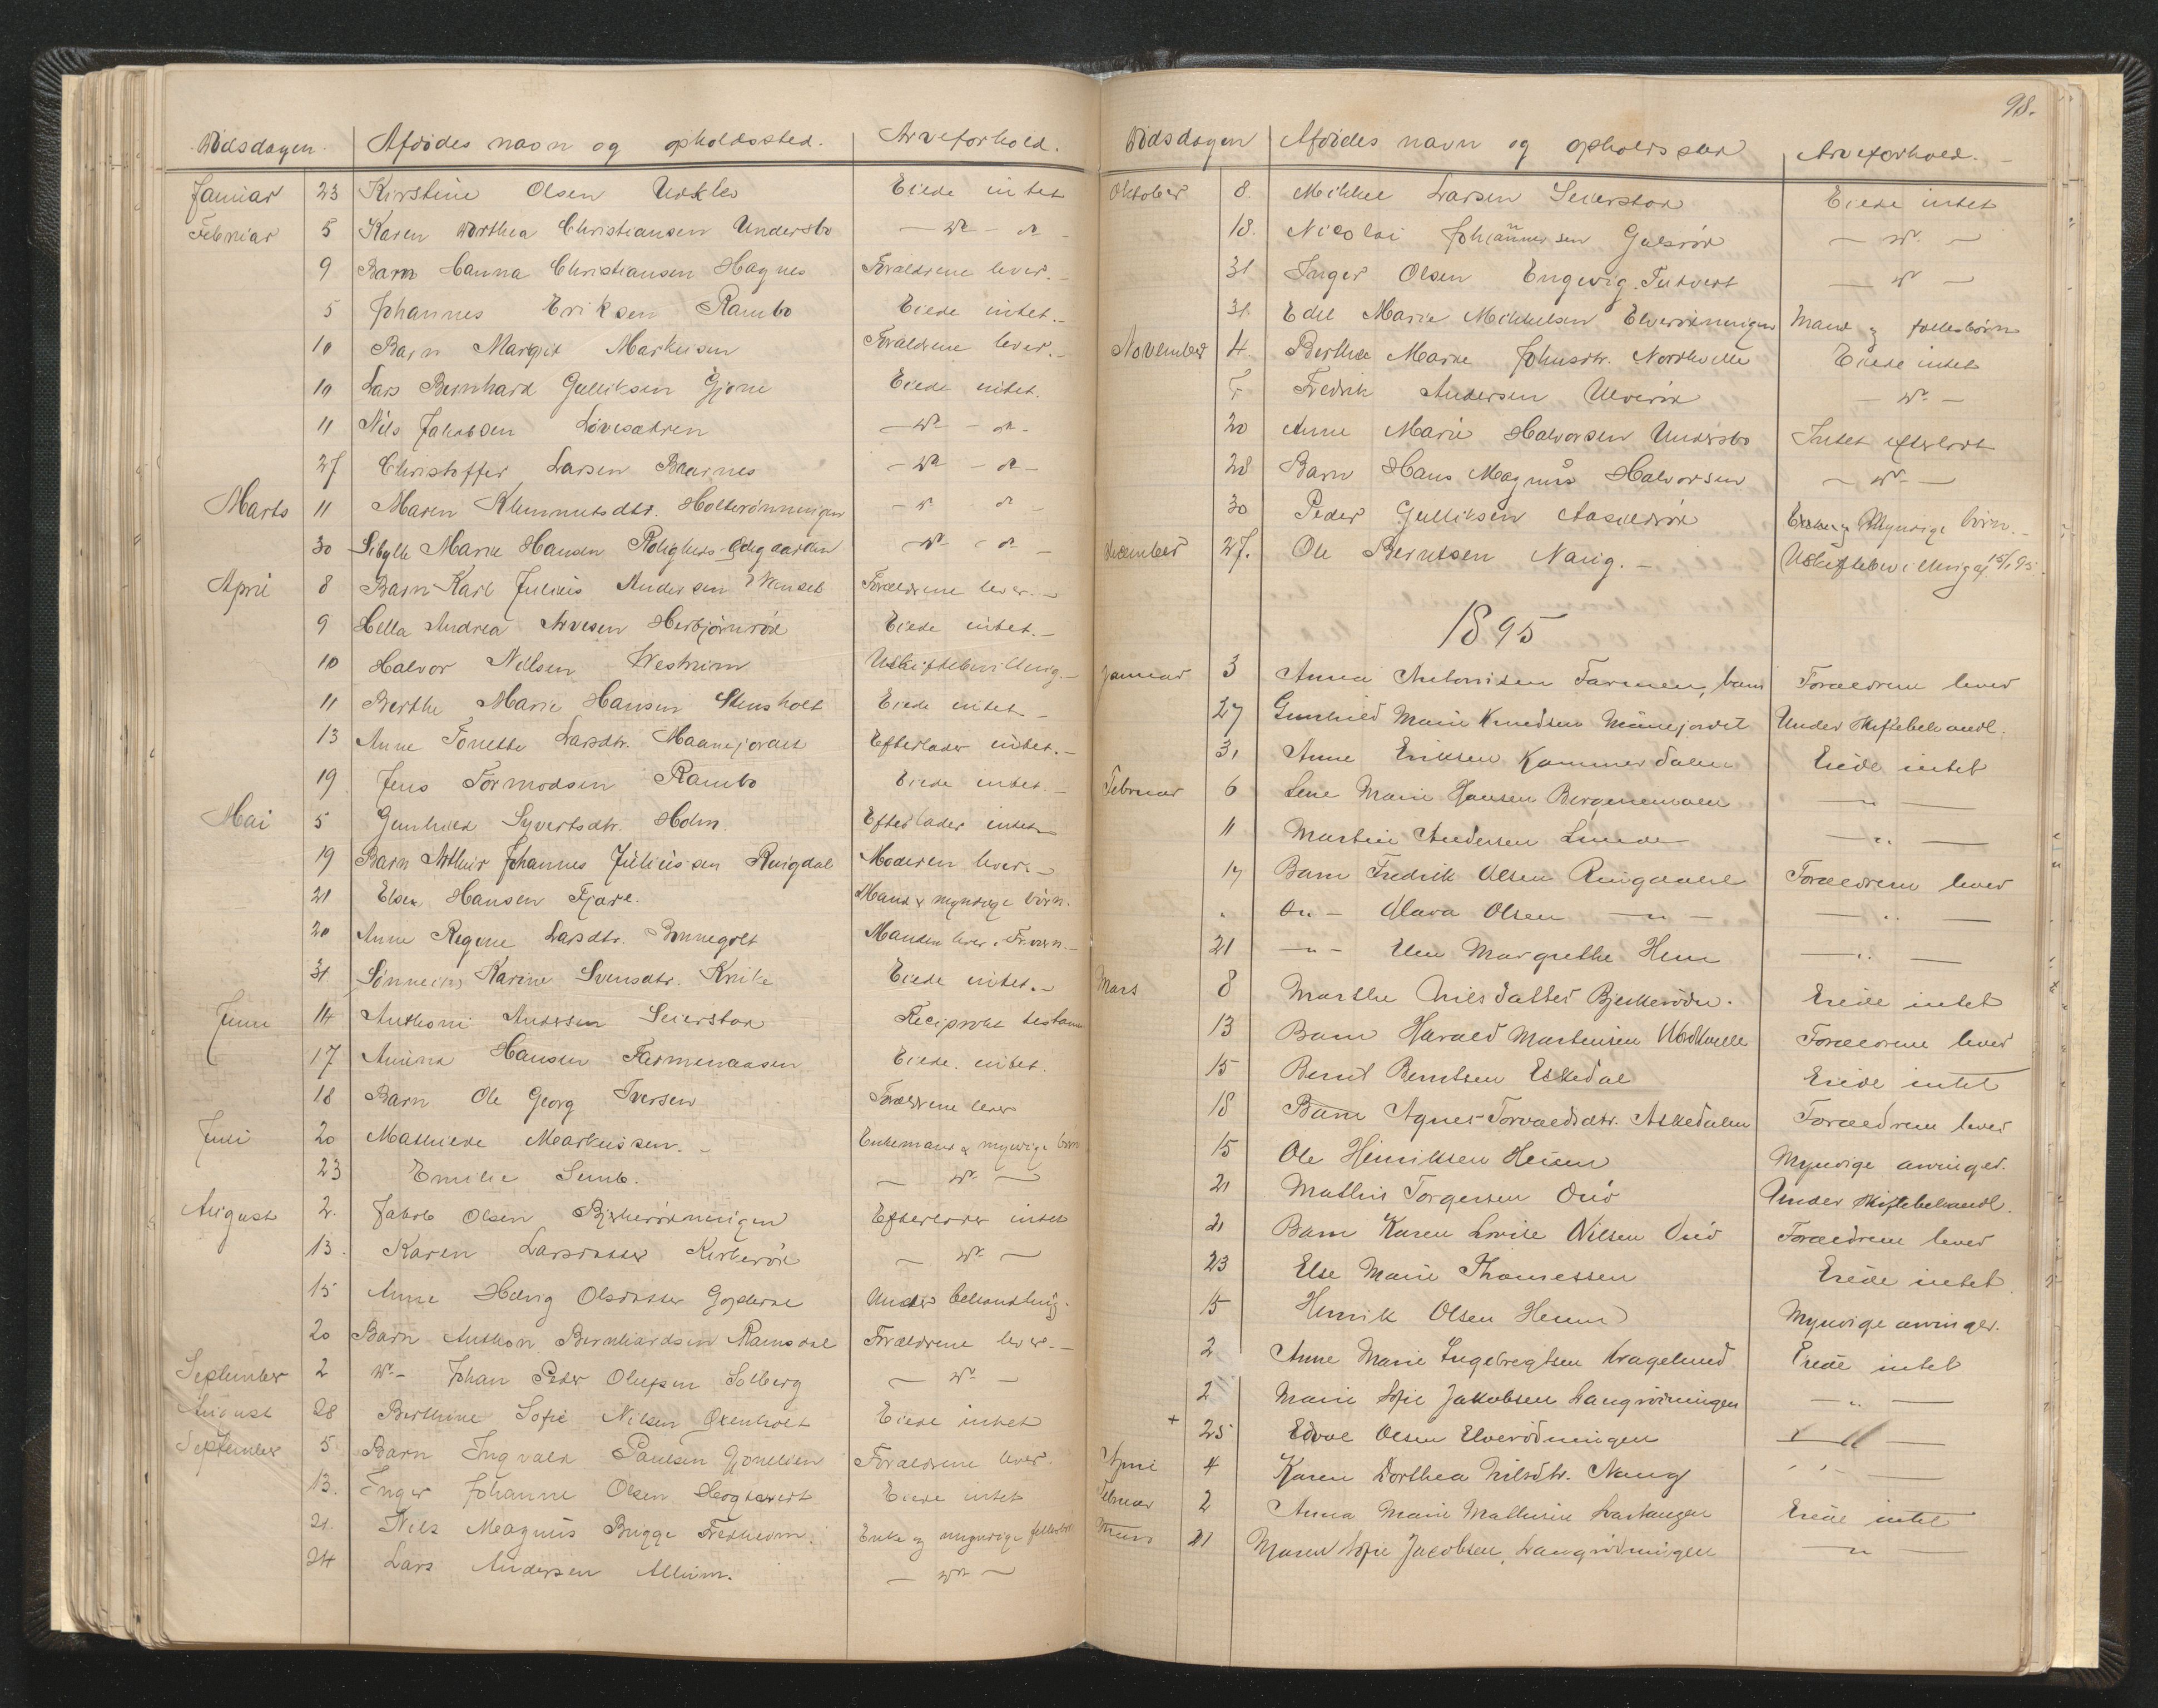 Dödsdagen. Afdödes navn og opholdssted. Arveforhold.
Januar 23 Kirstine Olsen Eiede intet
Februar 5 Karen Dorthea Christiansen Undersbo — do — do —
9 Barn Hanna Christiansen Hagnes Forældrene lever. —
5 Johannes Eriksen Rambo Eiede intet. —
10 Barn Margit Markusen Forældrene lever. —
10 Lars Bernhard Gulliksen Gjone Eiede intet.
11 Nils Jakobsen Lövesætren — do — do —
27 Christoffer Larsen — do — do —
Marts 11 Maren Klemmetsdtr. Holterönningen — do — do —
30 Sibylle Marie Hansen — do — do —
April 8 Barn Karl Julius Andersen Forældrene lever. —
9 Hella Andrea Arvesen Herbjörnröd Eiede intet. —
10 Halvor Nilsen Westrum Uskiftebevilling. —
11 Berthe Marie Hansen Stensholt Eiede intet —
13 Anne Tonette Larsdtr. Maanejordet Efterlader intet. —
19 Jens Tormodsen Rambo Eiede intet. —
Mai 5 Gunhild Syvertsdtr. Holm. Efterlader intet
19 Barn Arthur Johannes Juliussen Ringdal Moderen lever. —
21 Elsea Hansen Fjære. Mand & myndige börn.
20 Anne Regine Larsdtr. Bonnegolt Manden lever.
31. Karine Svensdtr. Knike Eiede intet. —
Juni 14 Anthoni Andersen Seierstad Reciprokt testam
17 Amina Hansen Farmenaasen Eiede intet.
18 Barn Ole Georg Iversen Forældrene lever
Juli 20 Mathilde Markussen. — Enkemand & myndige börn
23 Emilie Sunb. — do —
August 2. Jakob Olsen Bjerkerönningen Efterlader intet
13. Karen Larsdatter Kirkeröd — do —
15 Anne Helvig Olsdatter Under behandling.
20 Barn Anthon Bernhardsen Ramsdal Forældrene lever. —
September 2 do — Johan Peder Olufsen Solberg — do —
August 28 Berthine Sofie Nilsen Oxenholt Eiede intet
September 5 Barn Ingvald Paulsen Gjonelien Forældrene lever.
13. Inger Johanne Olsen Eiede intet
21. Nils Magnus Brigge Fredheim. Enke og myndige
24 Lars Andersen Allum. — do —
98.
Dödsdagen Afdödes navn og opholdssted Arveforhold. —
Oktober 8. Mikkel Larsen Seierstad Eiede intet
18. Nicolai Johannessen Gulsröd — do —
31 Inger Olsen Engevig. — do —
31. Edel Marie Mikkelsen Elverönningen Mand og fællesbörn
November 4. Berthe Marie Johnsdtr. Nordkvelle Eiede intet
Fredrik Andersen Ulveröd — do —
20 Anne Marie Halvorsen Undersbo Intet efterladt
28 Barn Hans Magnus Halvorsen — do —
30 Peder Gulliksen Enke og Myndige börn. —
December 27. Ole Berntsen Naug. — Uskiftebevilling af 15/1 95.
1895
Januar 3 Anna Antonisen Farmen, barn Forældrene lever
27 Gunhild Marie Knudsen Maanejordet Under skiftebehandl.
31 Anne Eriksen Kammerdalen Eiede intet
Februar 6 Lene Marie Hansen Bergenemoen — " —
11 Martin Andersen Lunde — " —
17 Barn Fredrik Olsen Ringdal Forældrene lever
" do — Klara Olsen — " — — " —
21 — " — Margrethe Hem — " —
Mars 8 Marthe Nilsdatter Bjerkeröden. Eiede intet
13 Barn Harald Martinsen Nordkvelle Forældrene lever
15 Bernt Berntsen Eskedal Eiede intet
18 Barn Agnes Torvaldsdtr. Askedalen Forældrene lever
15 Ole Henriksen Heum Myndige arvinger.
21 Mathis Torgersen Under skiftebehandl.
21 Barn Karen Lovise Nilsen Forældrene lever
23 Else Marie Thomessen Eiede intet
15 Henrik Olsen Heum Myndige arvinger.
2 Anne Marie Ingebregtsen Kragelund Eiede intet
2 Marie Sofie Jakobsen Langrönningen — " —
+ 25 Olsen Elverödningen — " —
April 4 Karen Dorthea Nilsdtr. Naug — " —
Februar 2 Anna Marie Mathisen Eiede intet
Mars 21 Maren Sofie Jacobsen, Langrödningen — " —